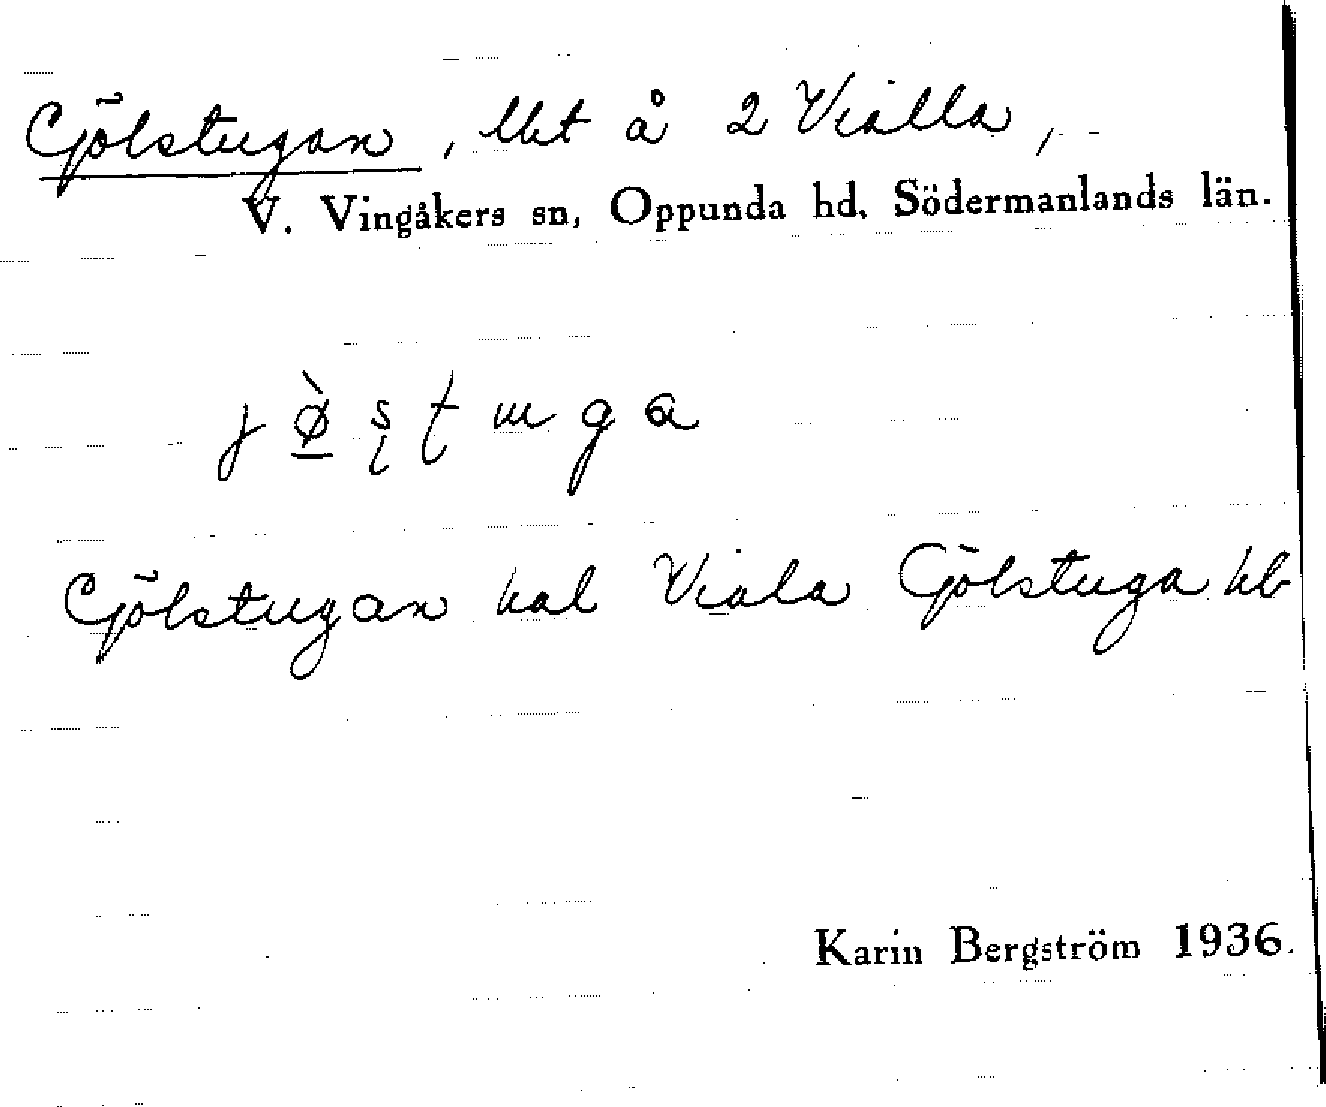 Gölstugan, lht å 2 Vialla,
V. Vingåkers sn, Oppunda hd. Södermanlands län.
Gölstugan hal Viala Gölstuga hb
Karin Bergström 1936.